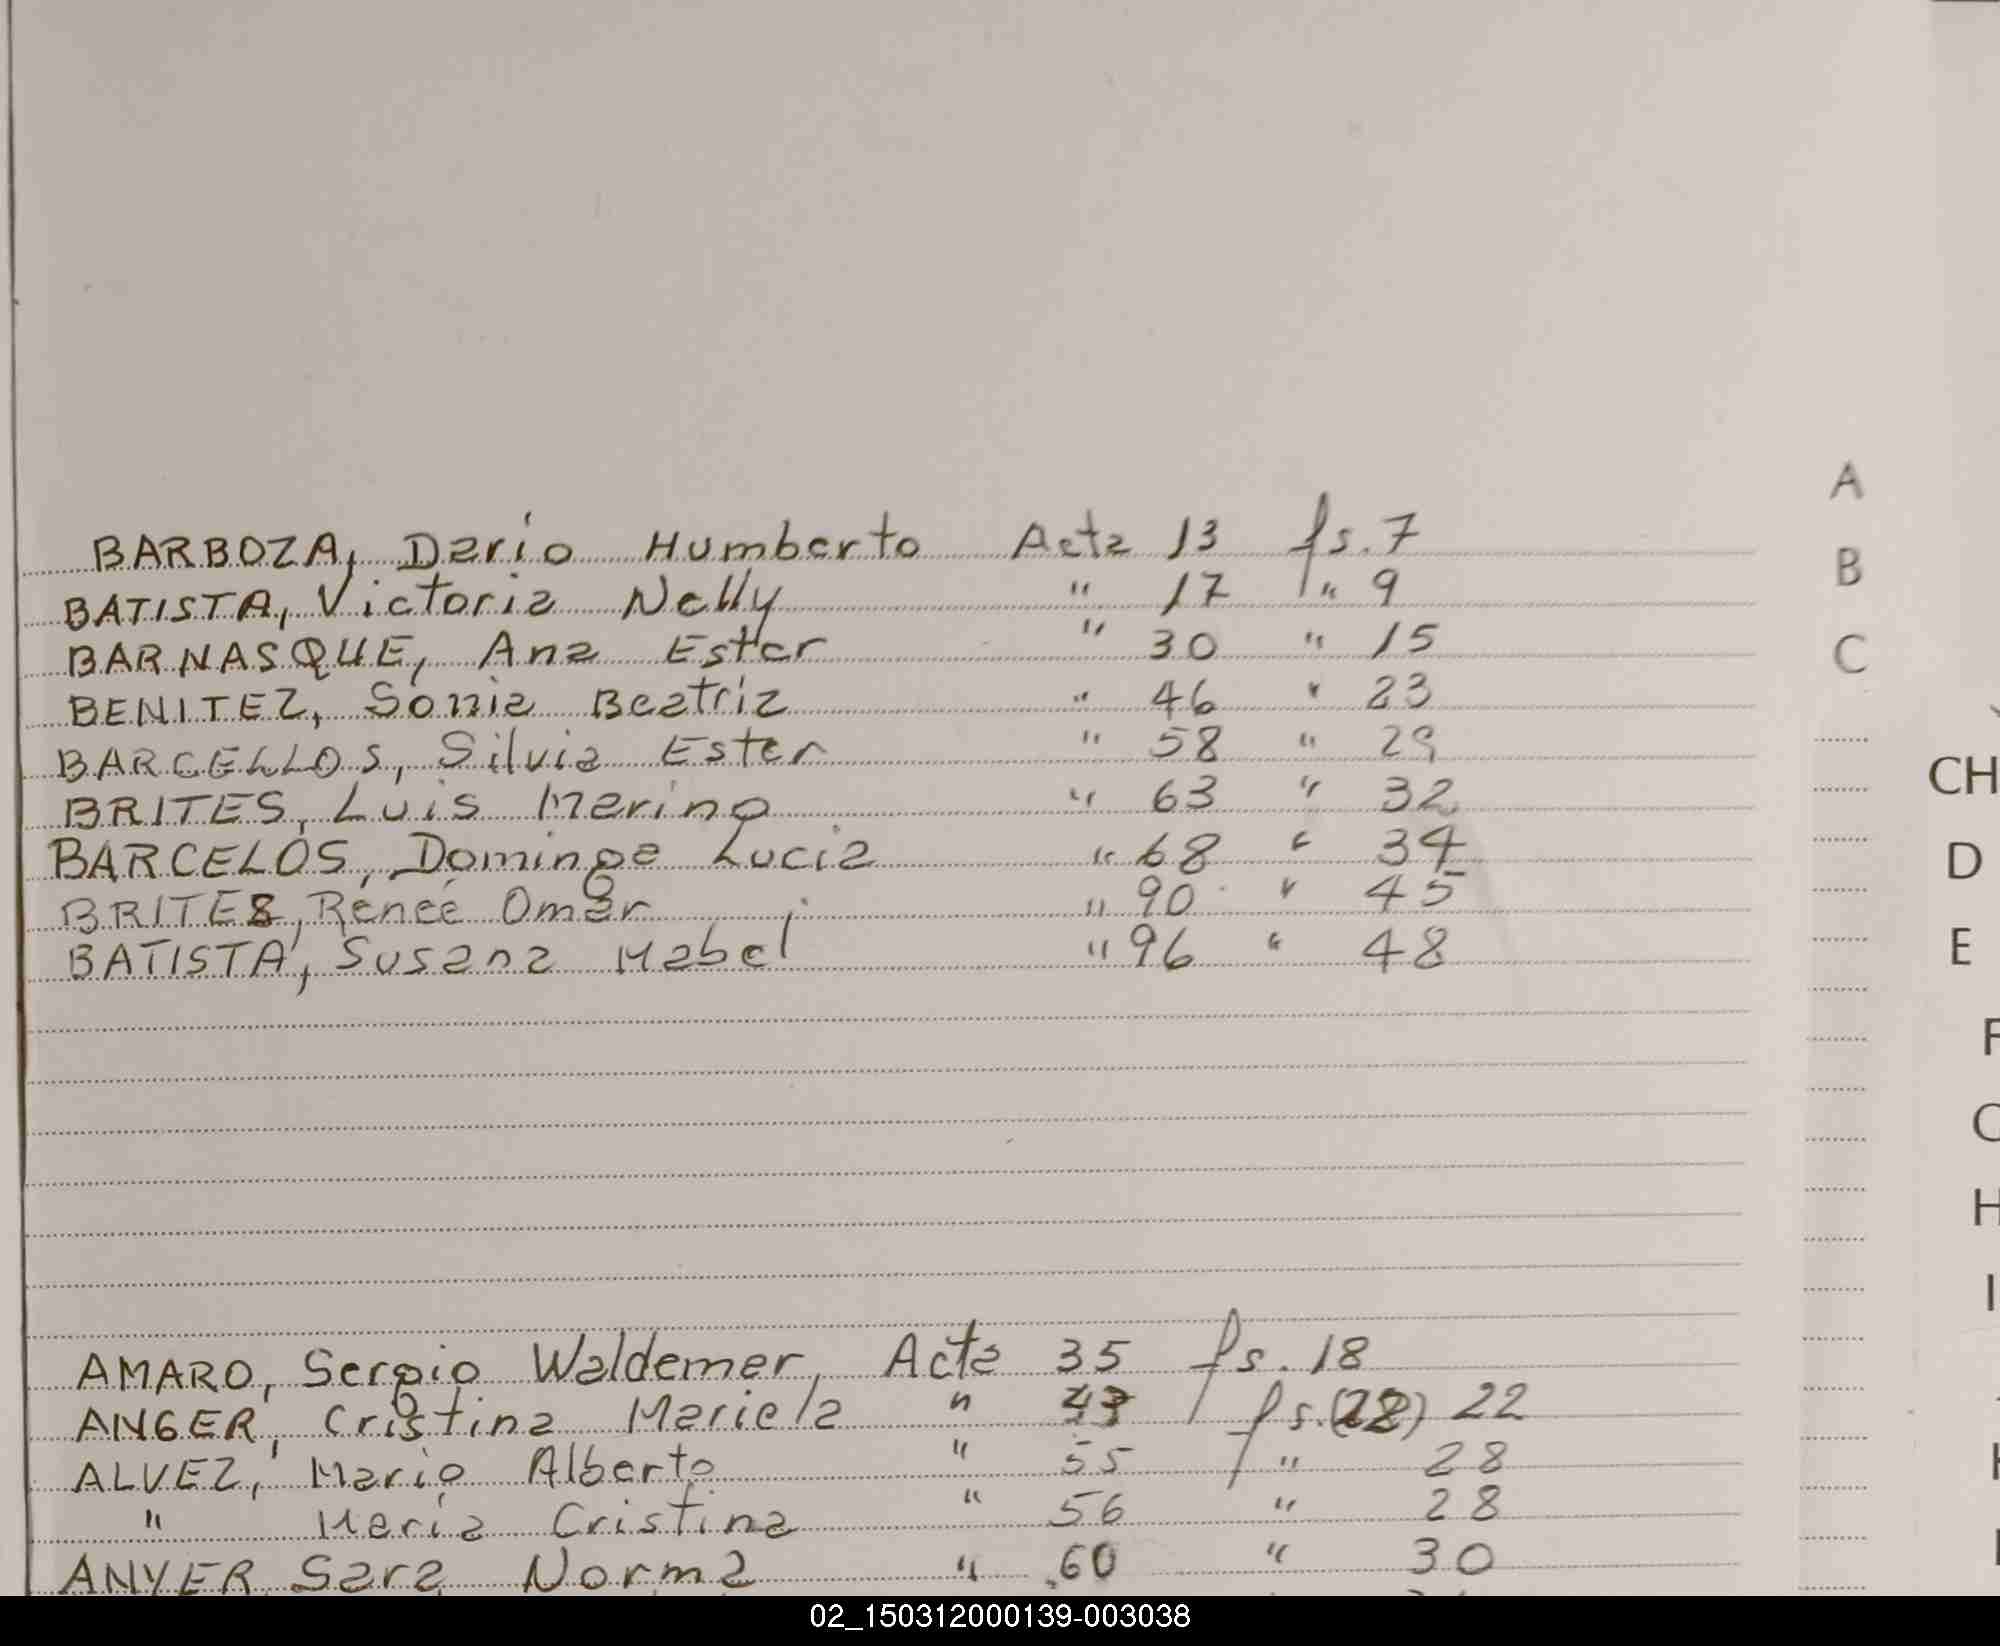 BARBOZA, Dario Humberto Acta 13 fs. 7
BATISTA, Victoria Nelly " 17 " 9
BARNASQUE, Ana Ester " 30 " 15
BENITEZ, Sonia Beatriz " 46 " 23
BARCELLOS, Silvia Ester " 58 " 29
BRITES, Luis Marino " 63 " 32
BARCELOS, Dominga Lucia " 68 " 34
BRITES, Reneé Omar " 90 " 45
BATISTA, Susana Mabel " 96 " 48
AMARO, Sergio Waldemar, Acta 35 fs. 18
ANGER, Cristina Mariela " 43 fs. (22) 22
ALVEZ, Mario Alberto " 55 " 28
" María Cristina " 56 " 28
ANYER Sara Norma " 60 " 30
A
B
C
CH
D
E
F
H
I
02_150312000139-003038